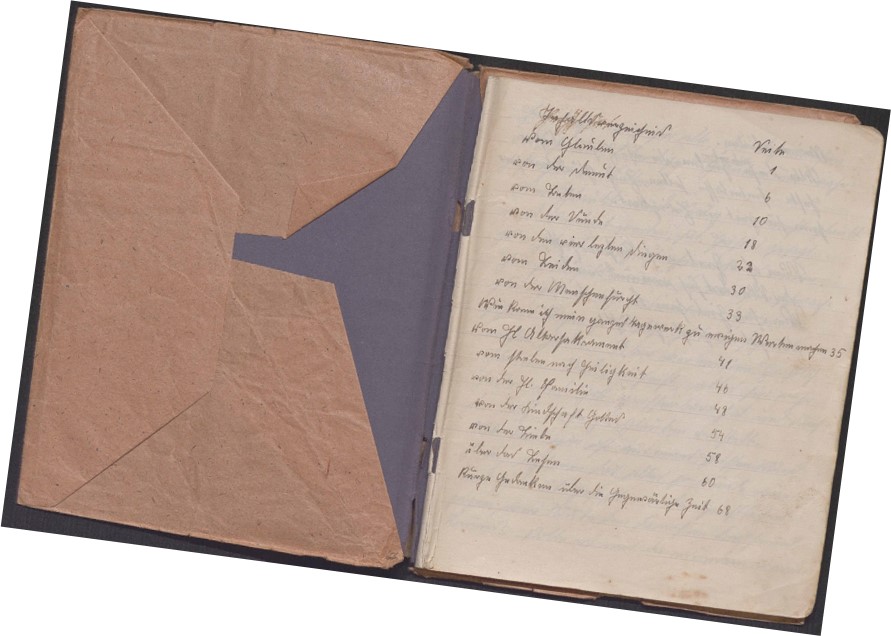 Inhaltsverzeichnis
Seite
vom Glauben 1
von der Demut 6
vom Beten 10
von der Sünde 18
von den vier lezten Dingen 22
vom Leiden 30
von der Menschenfurcht 33
Wie kann ich mein ganzes Tagewerk zu ewigen Werten machen 35
vom Hl Altarsakrament 41
vom streben nach Heiligkeit 46
von der Hl. Familie 49
von der Kindschaft Gottes 54
von der Liebe 58
über das Lesen 60
Kurze Gedanken über die Gegenwärtige Zeit 68